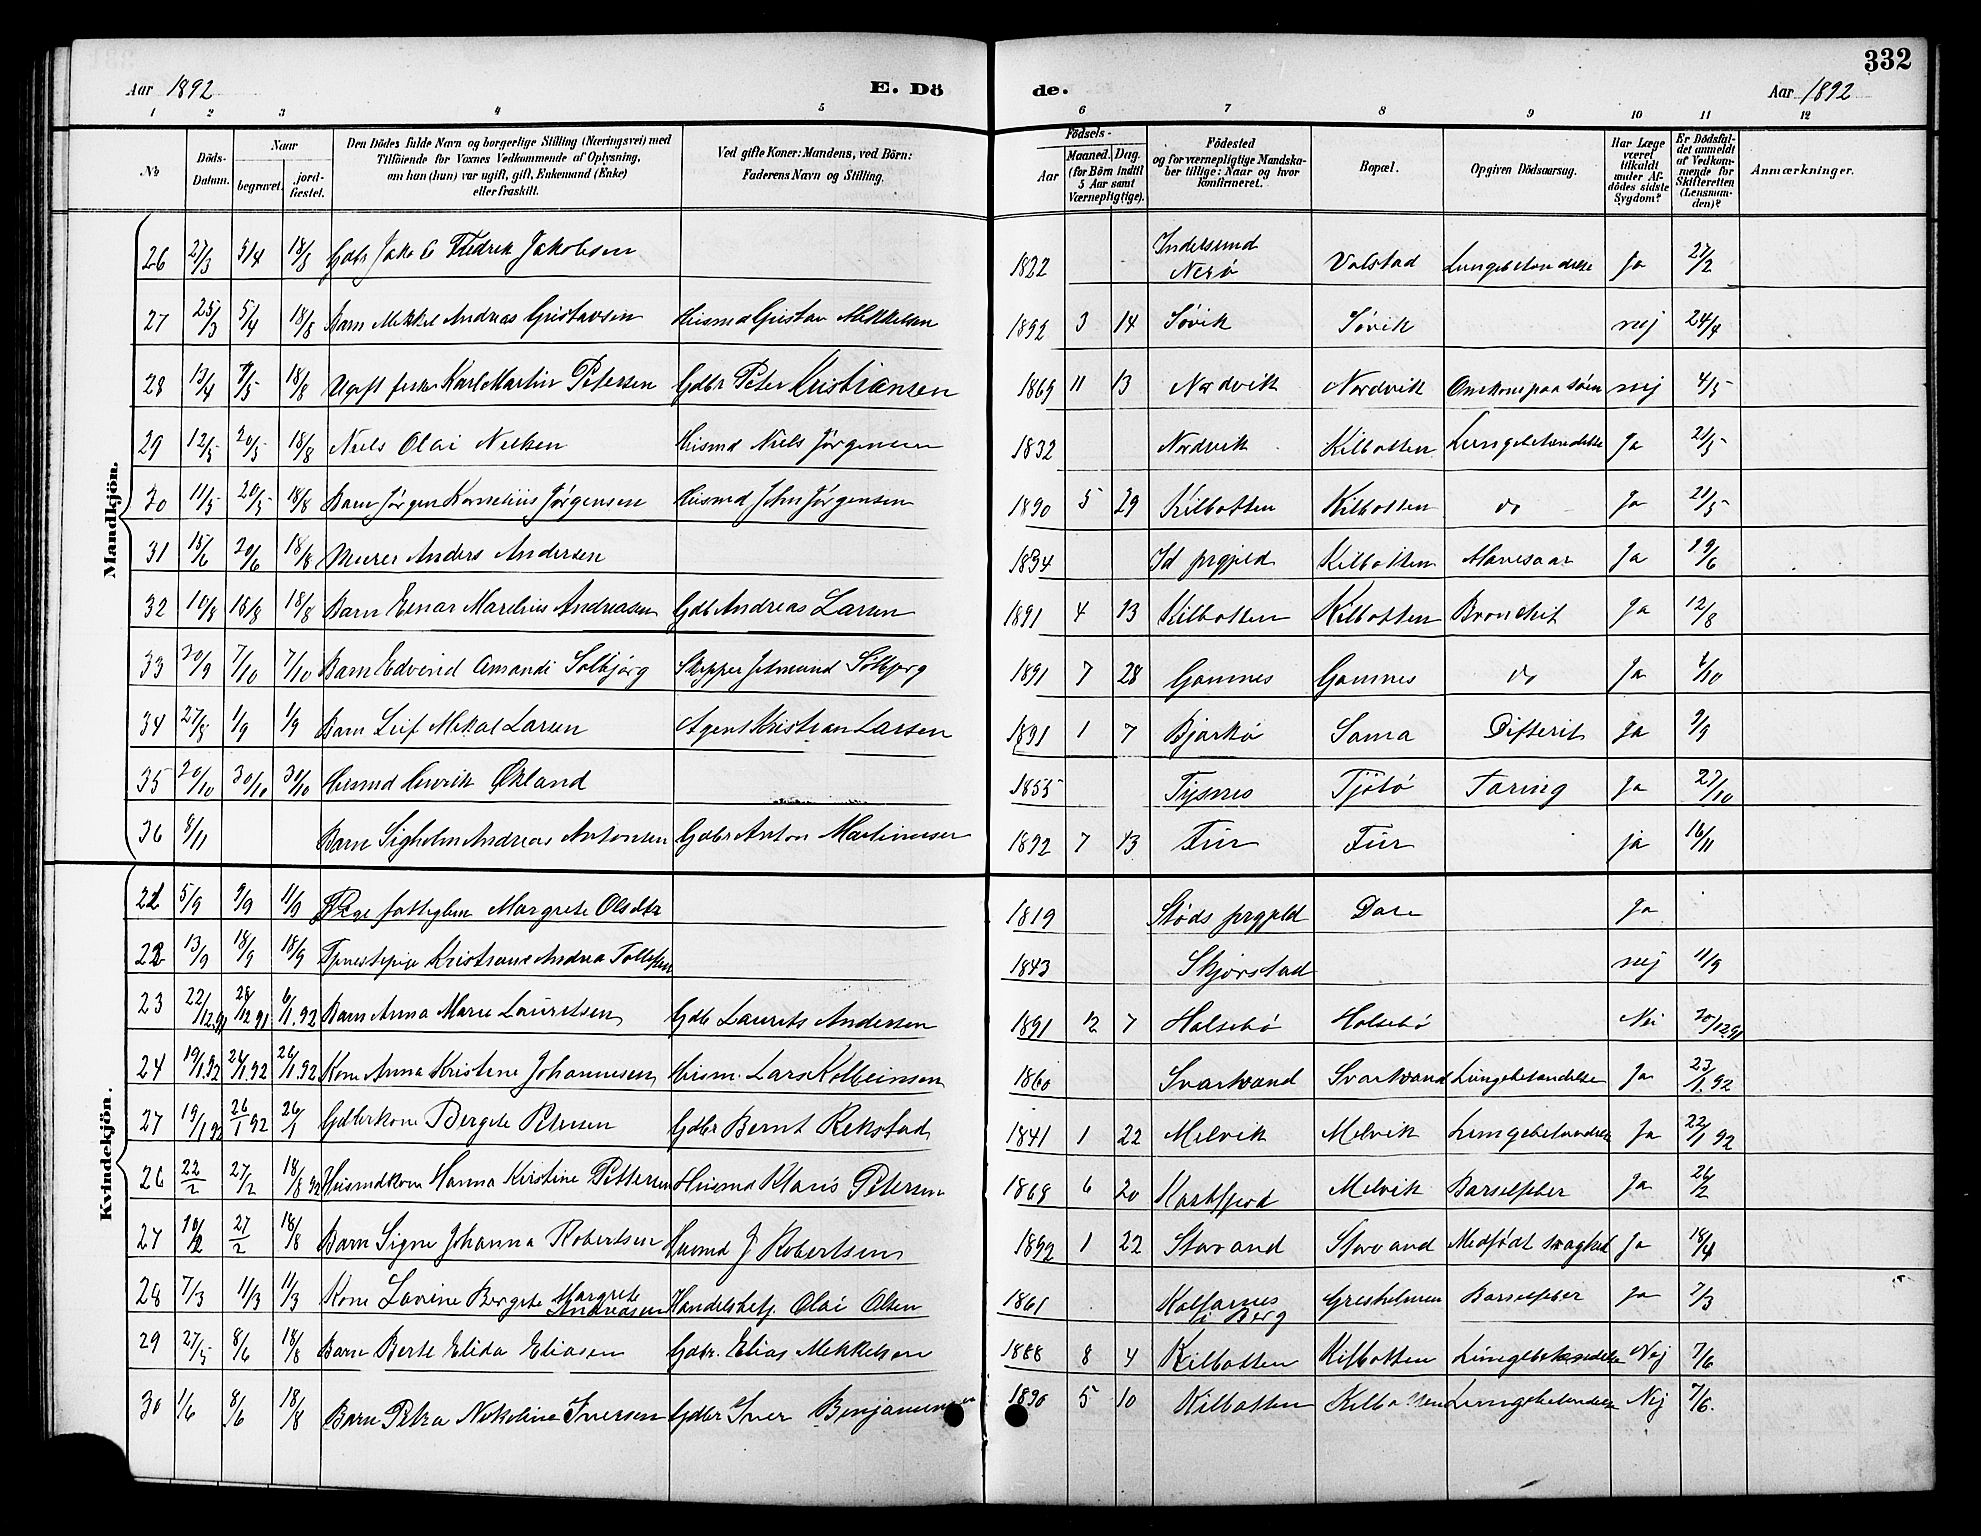 332
Aar 1892 E. Dö de. Aar 1892
1 2 3 4 5 6 7 8 9 10 11 12
No
Döds-Datum.
Naar
begravet.
jordfæstet.
Den Dödes fulde Navn og borgerlige Stilling (Næringsvei) med
Tilföiende for Voxnes Vedkommende af Oplysning,
om han (hun) var ugift, gift, Enkemand (Enke)
eller fraskilt.
Ved gifte Koner: Mandens, ved Börn:
Faderens Navn og Stilling.
Födsels-
Aar
Maaned. Dag.
(for Börn indtil
5 Aar samt
Værnepligtige).
Födested
og for værnepligtige Mandska-
ber tillige: Naar og hvor
konfirmeret.
Bopæl.
Opgiven Dödsaarsag.
Har Læge
været
tilkaldt
under Af-
dödes sidste
Sygdom?
Er Dödsfal-
det anmeldt
af Vedkom-
mende for
Skifteretten
(Lensman-
den)?
Anmærkninger.
Mandkjön.
26 27/3 5/4 18/8 Gdbr Jakob Fredrik Jakobsen 1822 Indersund Nerö Valstad Lungebetændelse Ja 27/2
27 25/3 5/4 18/8 Barn Mikkel Andreas Gustavsen Husmd Gustav Mikkelsen 1892 3 14 Søvik Søvik nej 24/4
28 13/4 7/5 18/8 Ugift fisker Karl Martin Petersen Gdbr Peter Kristiansen 1869 11 13 Nordvik Nordvik Omkom paa søen nej 4/5
29 12/5 20/5 18/8 Niels Olai Nielsen Husmd Niels Jørgensen 1832 Nordvik Kilbotten Lungebetændelse Ja 21/5
30 11/5 20/5 18/8 Barn Jørgen Kornelius Jørgensen Husmd John Jørgensen 1890 5 29 Kilbotten Kilbotten do Ja 21/5
31 15/6 20/6 18/8 Murer Anders Andersen 1834 Id prgjeld Kilbotten Mavesaar Ja 19/6
32 10/8 18/8 18/8 Barn Einar Marelius Andreasen Gdb Andreas Larsen 1891 4 13 Kilbotten Kilbotten Bronchit Ja 12/8
33 30/9 7/10 7/10 Barn Edvind Amandi Solbjørg Skipper Solbjørg 1891 7 28 Gamnes Gamnes do Ja 1/10
34 27/8 1/9 1/9 Barn Leif Mikal Larsen Agent Kristian Larsen 1891 1 7 Bjarkö Sama Difterit Ja 9/9
35 20/10 30/10 30/10 Husmd Henrik Økland 1855 Tysnes Tjötö Tæring Ja 27/10
36 8/11 Barn Sigholm Andreas Antonsen Gdbr Anton Martinusen 1892 7 13 Fur Fur ja 16/11
Kvindekjön.
21 5/9 9/9 11/9 Pige fattiglem Margrete Olsdtr 1819 Støds prgjeld Dare Ja
22 13/9 18/9 18/9 Tjenestepige Kristiane Andrea Tollefsen 1843 Skjørstad nej 11/9
23 22/12.91 28/12 91 6/1.92 Barn Anna Marie Lauritsen Gdb Laurits Andersen 1891 12 7 Halsebö Halsebö Nei 30/12 91
24 19/1.92 26/1.92 26/1.92 Kone Anna Kristine Johannesen Husm. Lars Kolbeinsen 1860 Svartvand Svartvand Lungebetændelse Ja 23/1.92
27 19/1 92 26/1 92 26/1 Gdbrkone Bergete Petersen Gdbr Bernt Rekstad 1841 1 22 Melvik Melvik Lungebetændelse Ja 22/1 92
26 22/2 27/2 18/8 92 Husmdkone Hanna Kirstine Pettersen Husmd Klaus Petersen 1868 6 20 Kastfjord Melvik Barselfeber Ja 26/2
27 10/2 27/2 18/8 Barn Signe Johanna Robertsen Husmd J Robertsen 1892 1 22 Storvand Storvand Medfødt svaghed Ja 18/4
28 7/3 11/3 11/3 Kone Lovine Bergete Margrete Andreasen Handelsbetj. Olai Olsen 1861 Kolfarnes i Berg Gresholmen Barselfeber Ja 7/3
29 27/5 8/6 18/8 Barn Berte Elida Eliasen Gdbr. Elias Mikkelsen 1888 8 4 Kilbotten Kilbotten Lungebetændelse Nej 7/6
30 1/6 8/6 18/8 Barn Petra Nikoline Iversen Gdbr Iver Benjaminsen 1890 5 10 Kilbotten Kilbotten Lungebetændelse Nej 7/6.